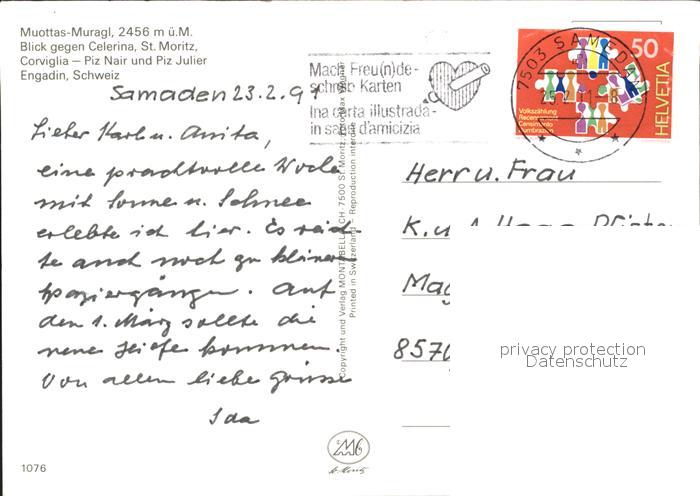 Muottas-Muragl, 2456 m ü.M.
Blick gegen Celerina, St. Moritz,
Corviglia – Piz Nair und Piz Julier
Engadin, Schweiz
Samaden 23.2.91
Lieber Karl u. Anita,
eine prachtvolle Woche
mit Sonne u. Schnee
erlebte ich hier. Es reich
te auch noch zu kleinen
Spaziergängen. Auf
den 1. März sollte die
neue kommen.
Von allem liebe Grüsse
Ida
1076
Copyright und Verlag CH-7500 St. Moritz
Printed in Switzerland – Reproduction interdite
Mach Freu(n)de-
schreib Karten
Ina carta illustrada-
in sogn d'amicizia
7503 SAMEDAN
50
HELVETIA
Volkszählung
Recensement
Censimento
Dumbraziun
Herr u. Frau
K. u. A.
857
privacy protection
Datenschutz
St. Moritz